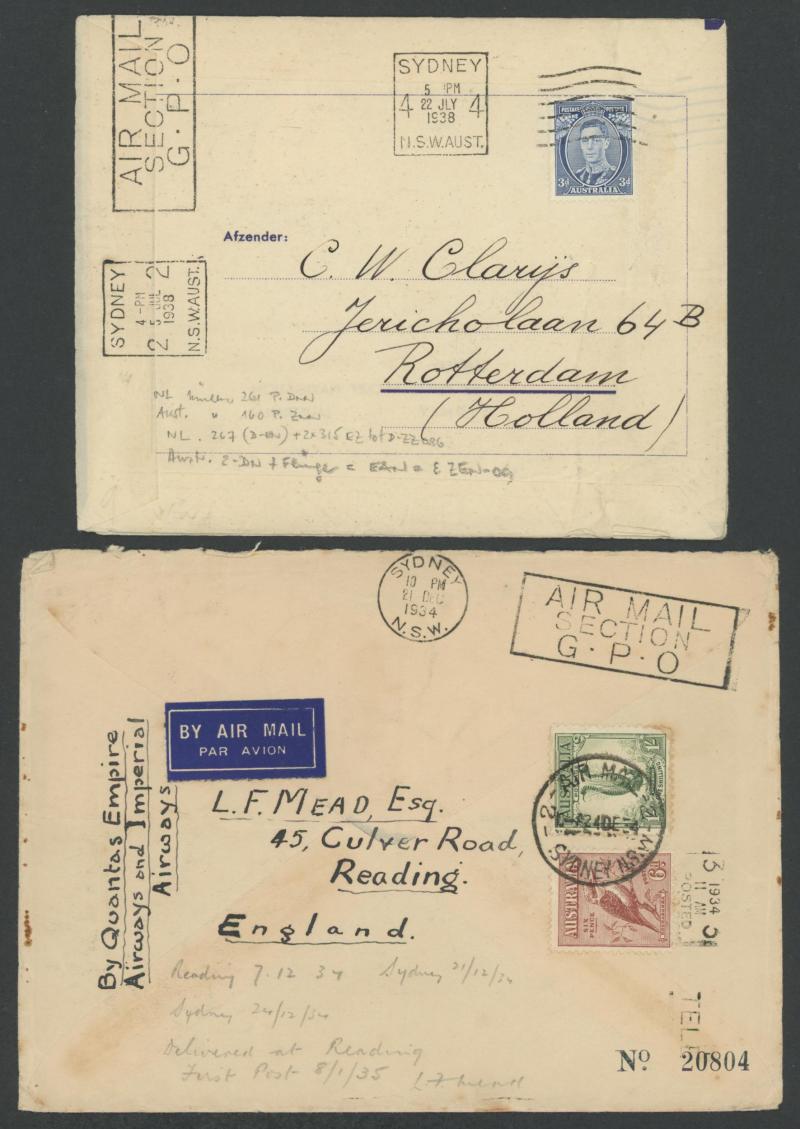 AIR MAIL
SECTION
G.P.O
SYDNEY
5 PM
4 22 JLY 4
1938
N.S.W.AUST.
POSTAGE POSTAGE
3d 3d
AUSTRALIA
SYDNEY
4-PM
2 5 JUL 2
1938
N.S.W.AUST.
Afzender:
C. W. Clarijs
Jericholaan 64B
Rotterdam
(Holland)
NL 261 P.
Aust. " 160 P.
NL. 267 + 2x315 EZ tot
SYDNEY
10 PM
21 DEC
1934
N.S.W.
AIR MAIL
SECTION
G.P.O
BY AIR MAIL
PAR AVION
By Quantas Empire
Airways and Imperial
Airways
L.F. MEAD, Esq.
45, Culver Road,
Reading.
England.
AUSTRALIA
SYDNEY N.S.W
AUSTRALIA
6D
SIX
PENCE
1934
11 AM
POSTED
Reading 7.12 34 Sydney 21/12/34
Sydney 24/12/34
Delivered at Reading
First Post 8/1/35 L F Mead
No. 20804